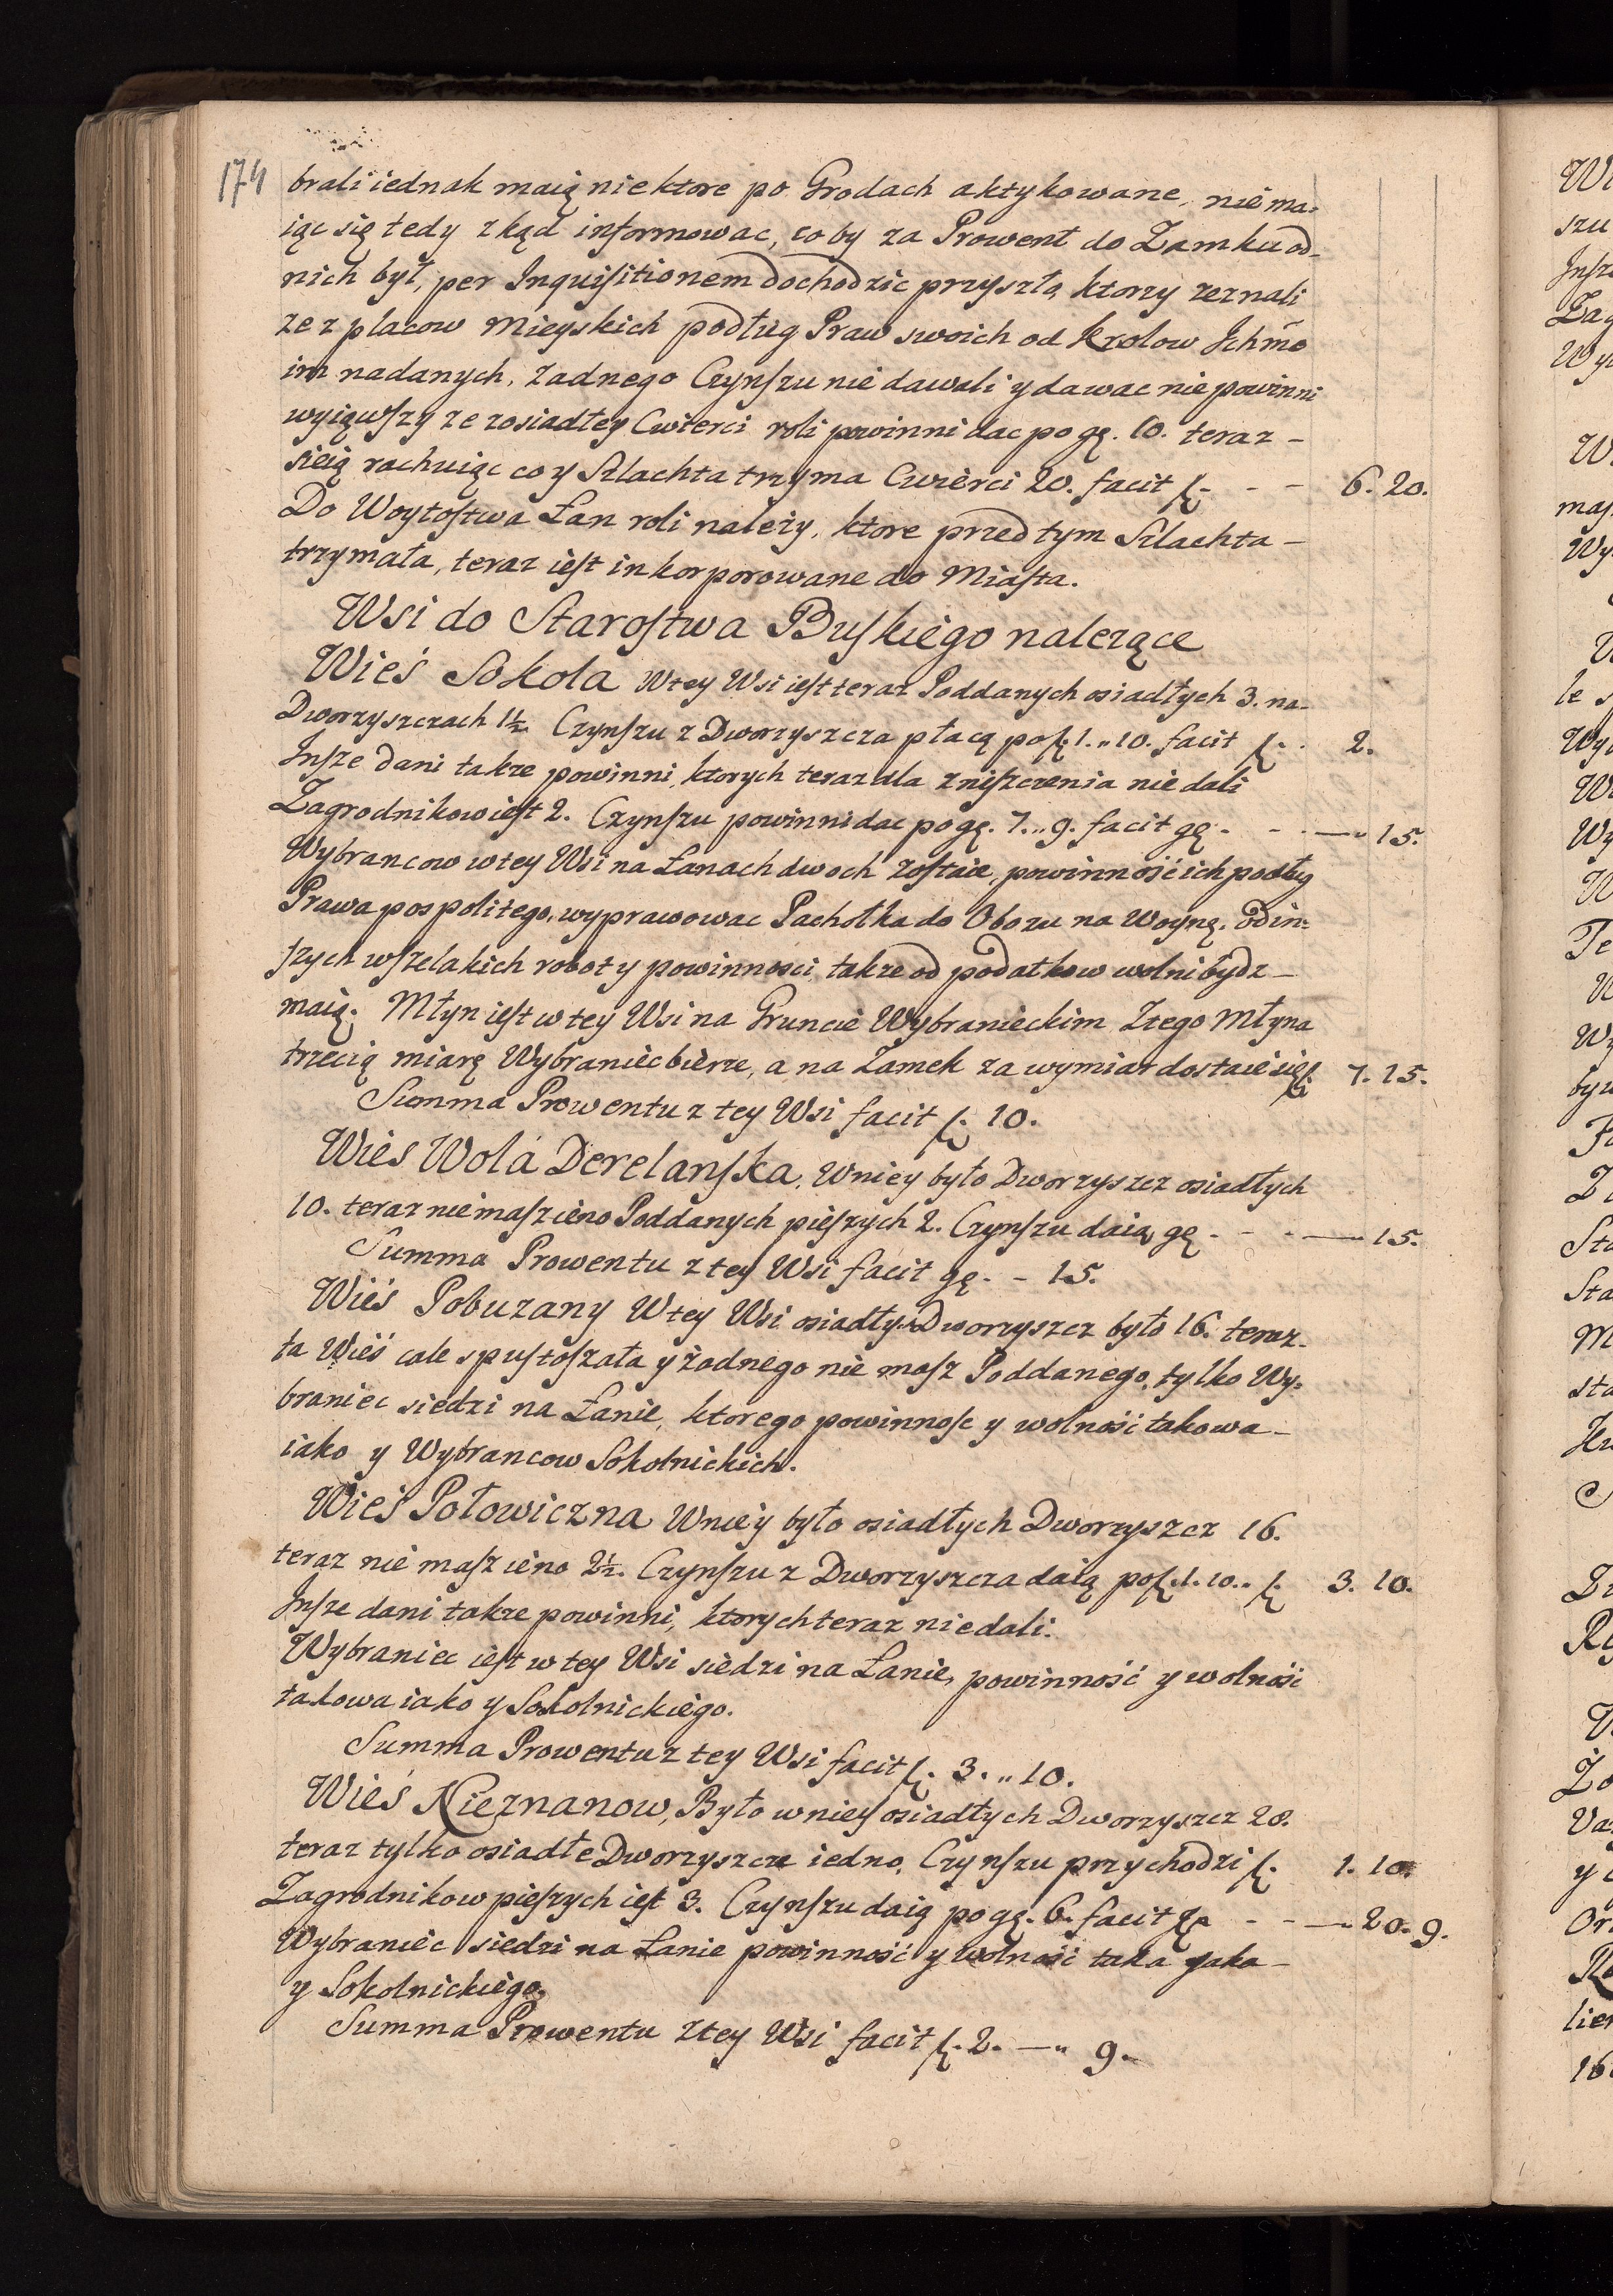 174
brali iednak maią niektore po Grodach aktykowane, nie ma=
iąc się tedy zkąd informowac, co by za Prowent do Zamku od
nich był, per Inquisitionem dochodzic przyszło, ktorzy zeznali
ze z placow Mieyskich podług Praw swoich od Krolow Jchm̃o
im nadanych, Zadnego Czynszu nie dawali y dawac nie powinni
wyiąwszy ze zosiadłey Cwierci roli powinni dac po gę. 10. teraz –
sieią rachuiąc co y Szlachta trzyma Cwierci 20. facit f. - - – 6. 20.
Do Woytostwa Łan roli należy, ktore przed tym Szlachta –
trzymała, teraz iest inkorporowane do Miasta.
Wsi do Starostwa Buskiego nalezące
Wieś Sokola Wtey Wsi iest teraz Poddanych osiadłych 3. na-
Dworzyszczach 1½ Czynszu z Dworzyszcza płacą po f. 1. „ 10. facit f. . 2.
Insze dani takze powinni, ktorych teraz dla zniszczenia nie dali
Zagrodnikow iest 2. Czynszu powinni dac po gę. 7. „ 9. facit gę. - - —„ 15.
Wybrancow wtey Wsi na Łanach dwoch zostaie, powinność ich podług
Prawa pospolitego, wyprawowac Pachołka do Obozu na Woynę. Od in=
szych wszelakich robot y powinności, takze od podatkow wolni bydz –
maią. Młyn iest w tey Wsi na Gruncie Wybranieckim Ztego Młyna
trzecią miarę Wybraniec bierze, a na Zamek za wymiar dostaie się f. 7. 15.
Summa Prowentu z tey Wsi facit f. 10.
Wies Wola Derelanska, Wniey było Dworzyszcz osiadłych
10. teraz niemasz ieno Poddanych pieszych 2. Czynszu daią gę. - - — 15.
Summa Prowentu z tey Wsi facit gę. - 15.
Wieś Pobuzany Wtey Wsi osiadłych Dworzyszcz było 16. teraz-
ta Wieś cale spustoszała y żadnego nie masz Poddanego, tylko Wy=
braniec siedzi na Łanie, ktorego powinnośc y wolność takowa –
iako y Wybrancow Sokolnickich.
Wieś Połowiczna Wniey było osiadłych Dworzyszcz 16.
teraz nie masz ieno 2½. Czynszu z Dworzyszcza daią po f. 1. 10. „ f. 3. 10.
Insze dani takze powinni, ktorych teraz nie dali.
Wybraniec iest w tey Wsi siedzi na Łanie, powinność y wolność
takowa iako y Sokolnickiego.
Summa Prowentu z tey Wsi facit f. 3. „ 10.
Wieś Nieznanow, Było wniey osiadłych Dworzyszcz 28.
teraz tylko osiadłe Dworzyszcze iedno, Czynszu przychodzi f. 1. 10.
Zagrodnikow pieszych iest 3. Czynszu daią po gę. 6. facit gę - - —„ 20. 9.
Wybraniec siedzi na Łanie powinność y wolność taka jaka –
y Sokolnickiego.
Summa Prowentu ztey Wsi facit f. 2. —„ 9.